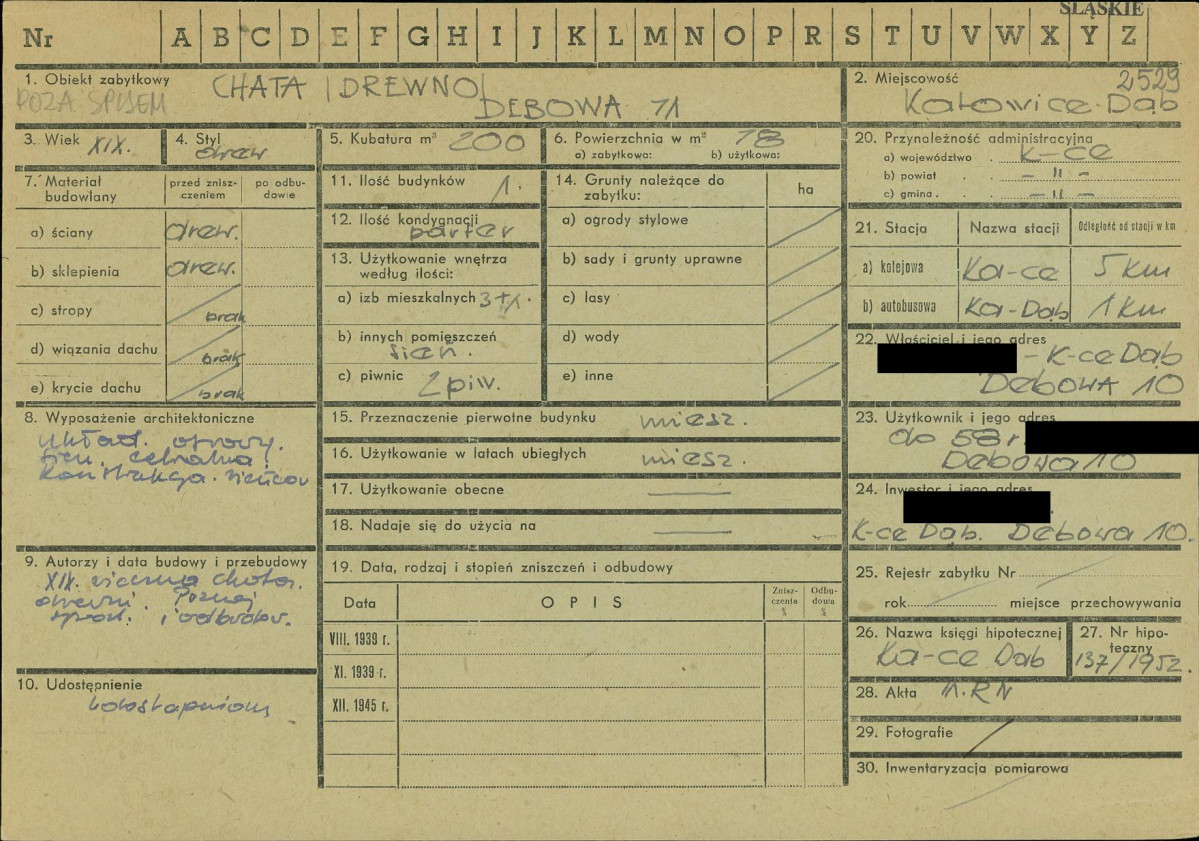 ŚLĄSKIE
Nr A B C D E F G H I J K L M N O P R S T U V W X Y Z
1. Obiekt zabytkowy
POZA SPISEM
CHATA | DREWNO |
DĘBOWA 11
2. Miejscowość 2529
Katowice-Dąb
3. Wiek XIX.
4. Styl
drew
5. Kubatura m³ 200
6. Powierzchnia w m² 78
a) zabytkowa: b) użytkowa:
20. Przynależność administracyjna
a) województwo K-ce
b) powiat - " -
c) gmina - " -
7. Materiał budowlany
przed znisz-
czeniem
po odbu-
dowie
a) ściany drew.
b) sklepienia drew.
c) stropy brak
d) wiązania dachu brak
e) krycie dachu brak
11. Ilość budynków 1.
12. Ilość kondygnacji
parter
13. Użytkowanie wnętrza
według ilości:
a) izb mieszkalnych 3+1.
b) innych pomięszczeń
sień.
c) piwnic 2 piw.
14. Grunty należące do
zabytku:
ha
a) ogrody stylowe
b) sady i grunty uprawne
c) lasy
d) wody
e) inne
21. Stacja Nazwa stacji Odległość od stacji w km
a) kolejowa Ka-ce 5 km
b) autobusowa Ka-Dąb 1 km
22. Właściciel i jego adres
- K-ce Dąb
DĘBOWA 10
8. Wyposażenie architektoniczne
układ.
sień.
15. Przeznaczenie pierwotne budynku miesz.
16. Użytkowanie w latach ubiegłych miesz.
17. Użytkowanie obecne
18. Nadaje się do użycia na
23. Użytkownik i jego adres
do 58 r.
Dębowa 10
24. Inwestor i jego adres
K-ce Dąb. Dębowa 10.
9. Autorzy i data budowy i przebudowy
XIX.
i odbudow.
10. Udostępnienie
19. Data, rodzaj i stopień zniszczeń i odbudowy
Data OPIS
Znisz-
czenia
%
Odbu-
dowa
%
VIII. 1939 r.
XI. 1939 r.
XII. 1945 r.
25. Rejestr zabytku Nr
rok miejsce przechowywania
26. Nazwa księgi hipotecznej
Ka-ce Dąb
27. Nr hipo-
teczny
137/1952.
28. Akta M.RN
29. Fotografie
30. Inwentaryzacja pomiarowa